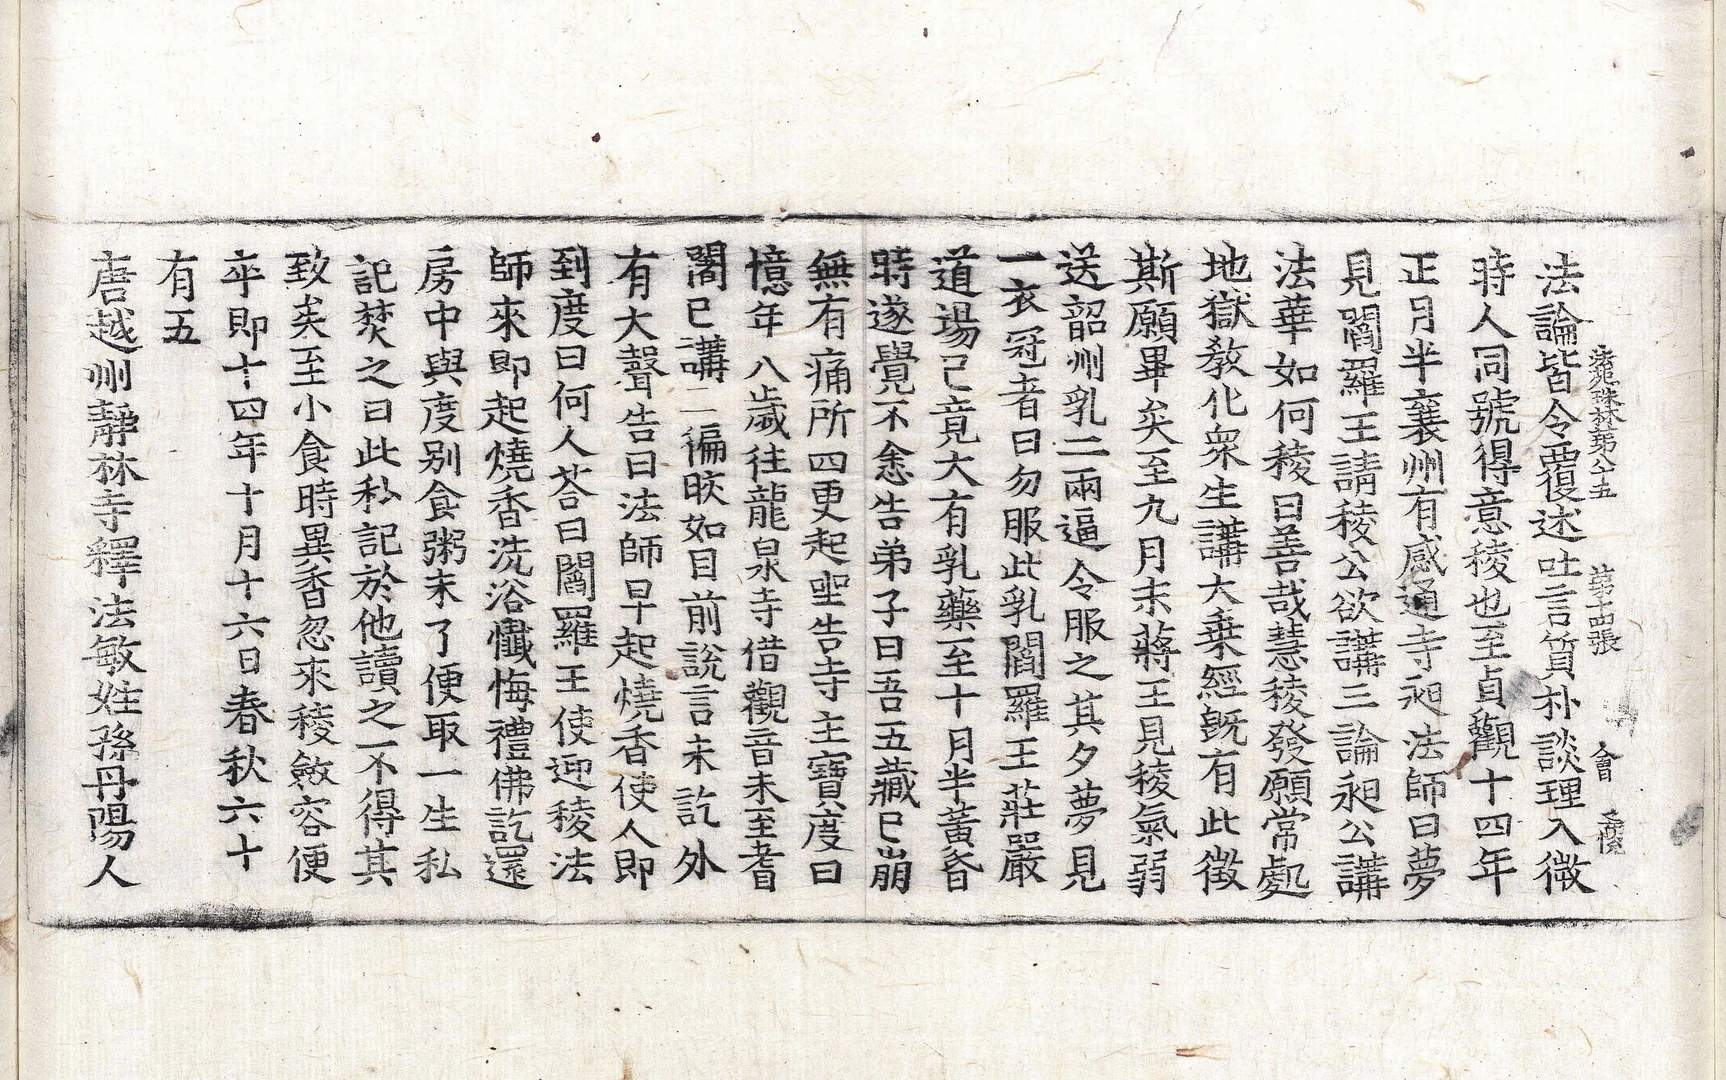 法苑珠林第八十五　第十四張　會
法論皆令覆述吐言質朴談理入微
時人同號得意稜也至貞觀十四年
正月半襄州有感通寺昶法師曰夢
見閻羅王請稜公欲講三論昶公講
法華如何稜曰善哉慧稜發願常處
地獄教化衆生講大乗經旣有此徵
斯願畢矣至九月末蔣王見稜氣弱
送韶州乳二兩逼令服之其夕夢見
一衣冠者曰勿服此乳閻羅王莊嚴
道場已竟大有乳藥至十月半黃昏
時遂覺不悆告弟子曰吾五藏已崩
無有痛所四更起坐告寺主寶度曰
憶年八歲往龍泉寺借觀音未至耆
闍已講二徧䀹如目前說言未訖外
有大聲告曰法師早起燒香使人即
到度曰何人荅曰閻羅王使迎稜法
師來即起燒香洗浴懺悔禮佛訖還
房中與度别食粥未了便取一生私
記焚之曰此私記於他讀之不得其
致矣至小食時異香忽來稜斂容便
卒即十四年十月十六日春秋六十
有五
唐越州靜林寺釋法敏姓孫丹陽人